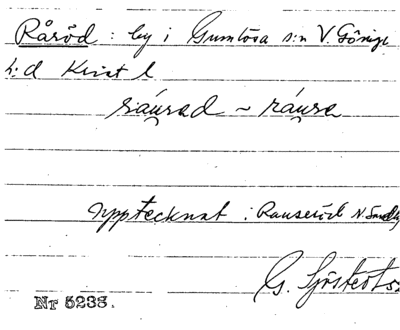 Råröd : by i Gumlösa s:n V. Göinge
h:d Krist l
ráu̯rad ~ ráu̯ra
upptecknat i Ranseröd N. Sandby
G. Sjöstedt
Nr 5233.